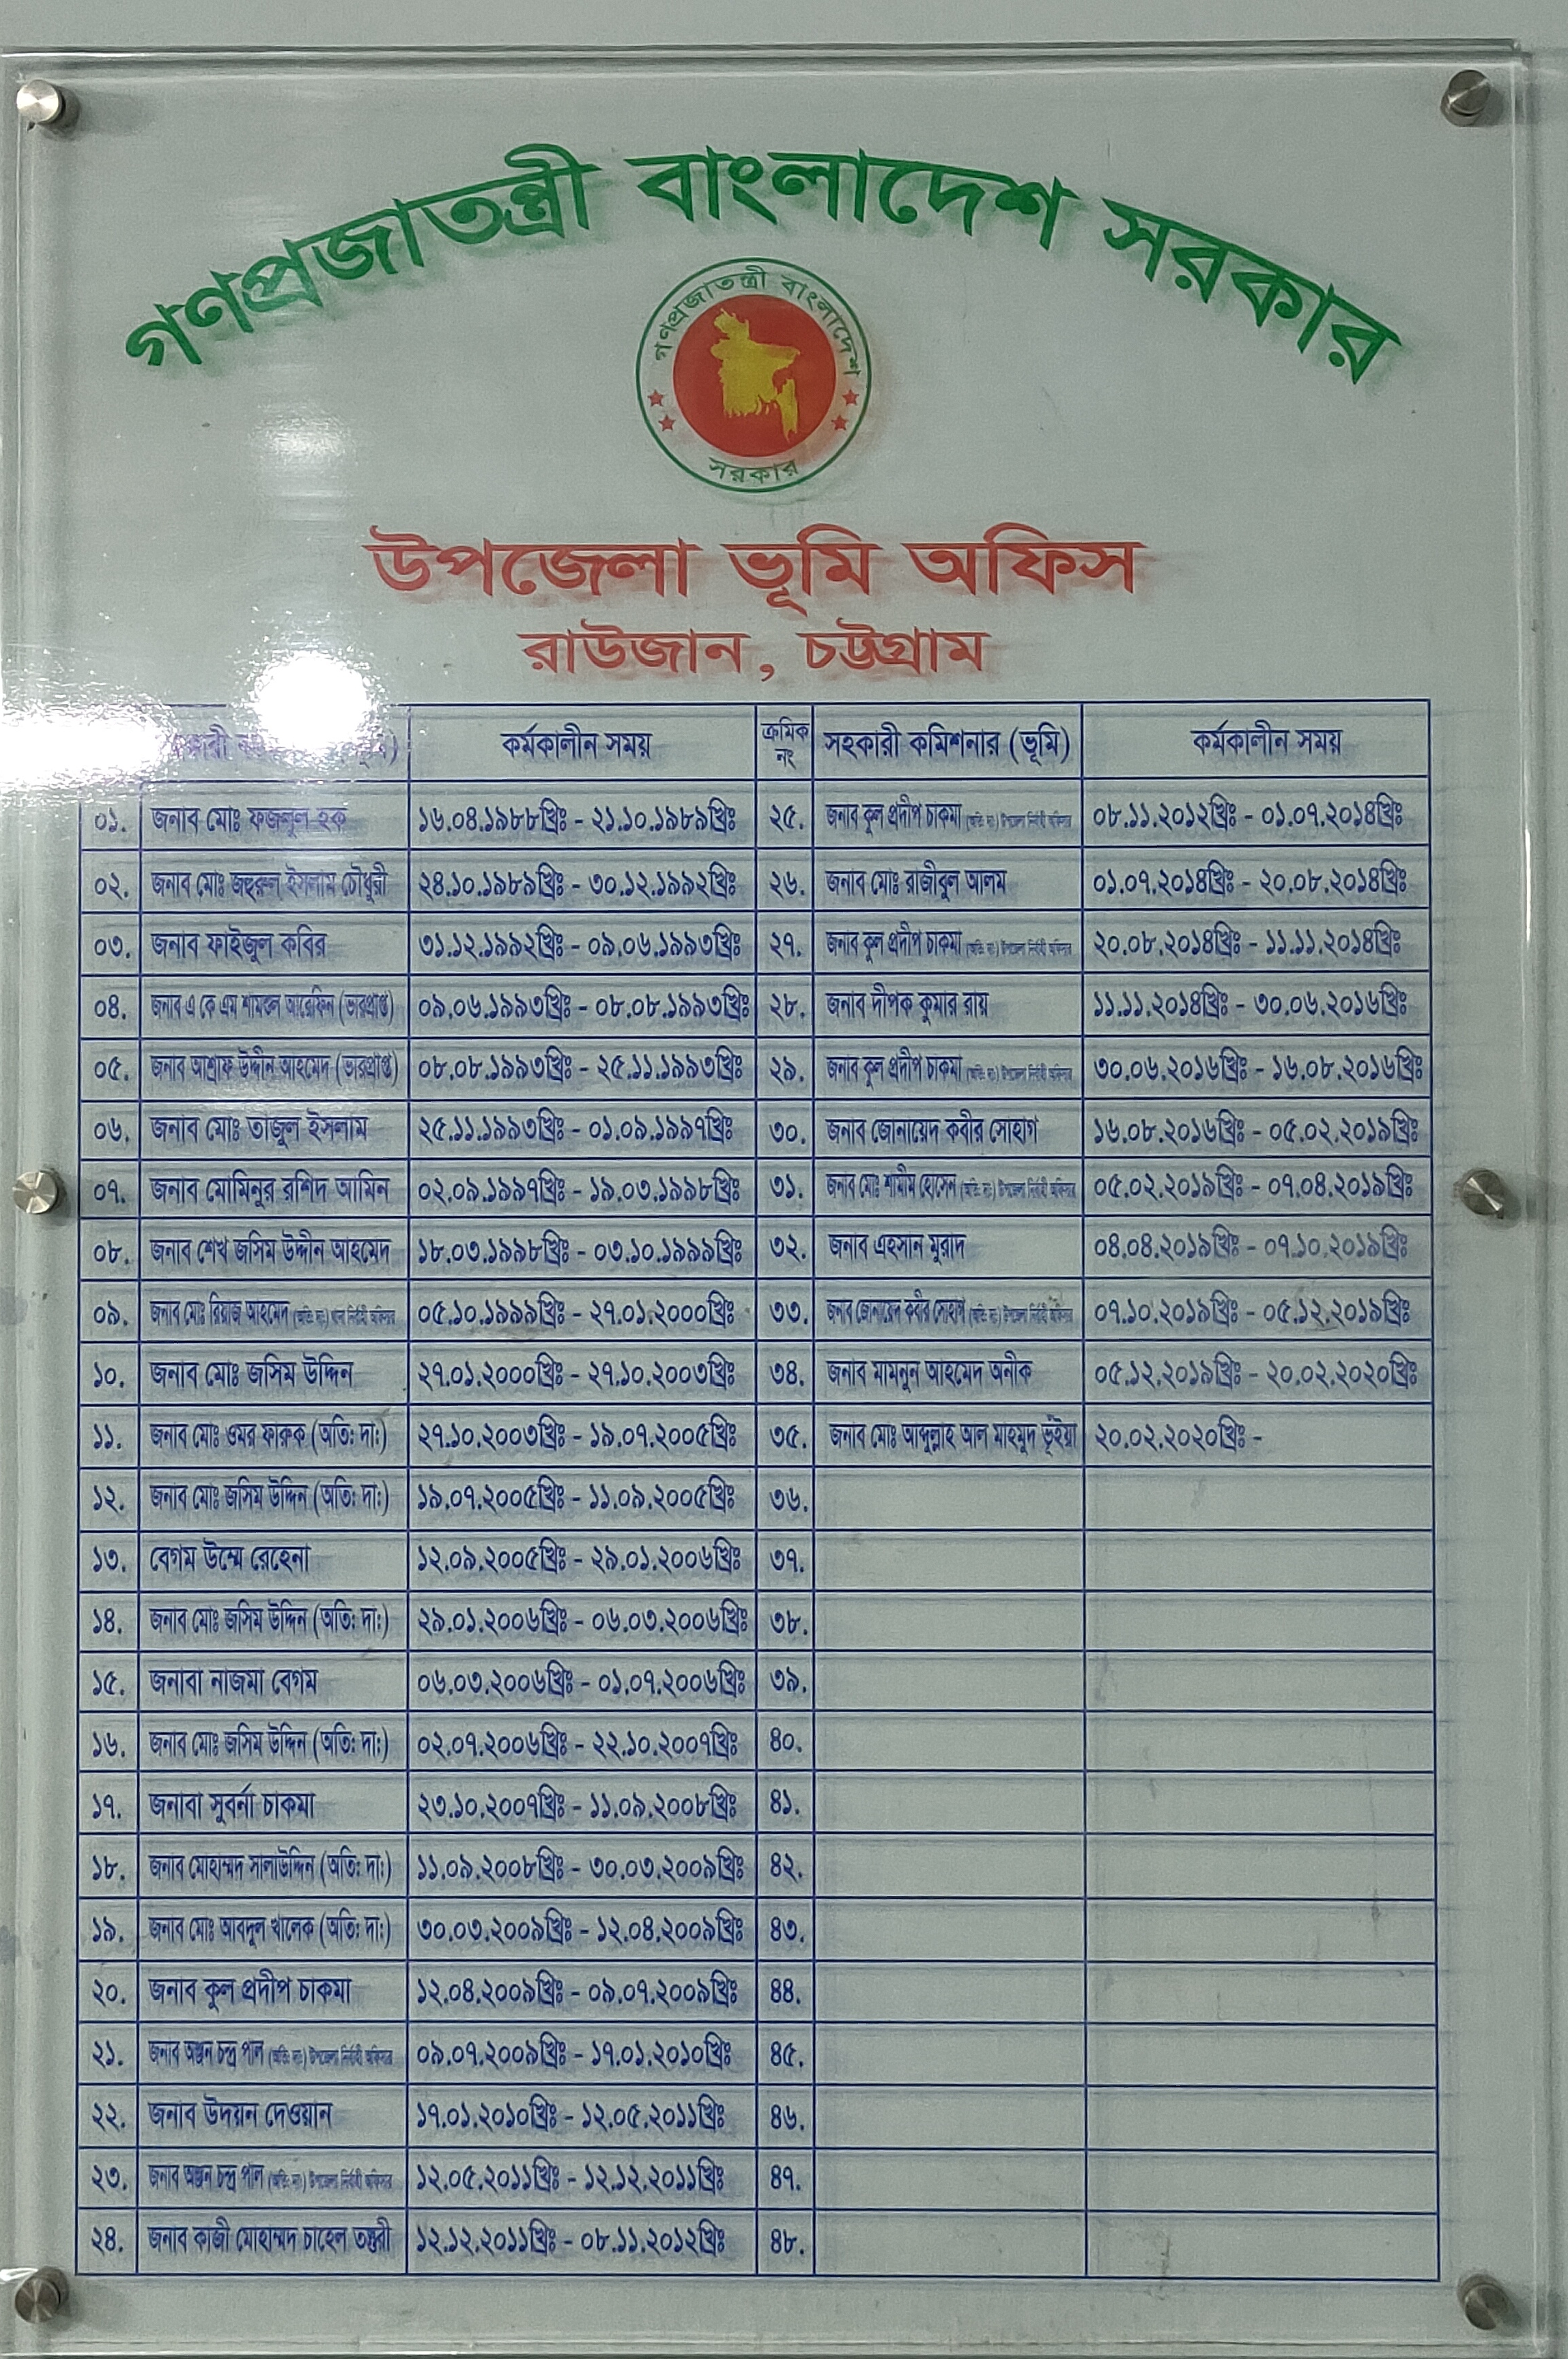 গণপ্রজাতন্ত্রী বাংলাদেশ সরকার
গণপ্রজাতন্ত্রী বাংলাদেশ
সরকার
উপজেলা ভূমি অফিস
রাউজান, চট্টগ্রাম
কর্মকালীন সময় ক্রমিক নং সহকারী কমিশনার (ভূমি) কর্মকালীন সময়
০১. জনাব মোঃ ফজলুল হক ১৬.০৪.১৯৮৮খ্রিঃ - ২১.১০.১৯৮৯খ্রিঃ ২৫. জনাব কুল প্রদীপ চাকমা (অতিঃ দাঃ) উপজেলা নির্বাহী অফিসার ০৮.১১.২০১২খ্রিঃ - ০১.০৭.২০১৪খ্রিঃ
০২. জনাব মোঃ জহুরুল ইসলাম চৌধুরী ২৪.১০.১৯৮৯খ্রিঃ - ৩০.১২.১৯৯২খ্রিঃ ২৬. জনাব মোঃ রাজীবুল আলম ০১.০৭.২০১৪খ্রিঃ - ২০.০৮.২০১৪খ্রিঃ
০৩. জনাব ফাইজুল কবির ৩১.১২.১৯৯২খ্রিঃ - ০৯.০৬.১৯৯৩খ্রিঃ ২৭. জনাব কুল প্রদীপ চাকমা (অতিঃ দাঃ) উপজেলা নির্বাহী অফিসার ২০.০৮.২০১৪খ্রিঃ - ১১.১১.২০১৪খ্রিঃ
০৪. জনাব এ কে এম শামছুল আরেফিন (ভারপ্রাপ্ত) ০৯.০৬.১৯৯৩খ্রিঃ - ০৮.০৮.১৯৯৩খ্রিঃ ২৮. জনাব দীপক কুমার রায় ১১.১১.২০১৪খ্রিঃ - ৩০.০৬.২০১৬খ্রিঃ
০৫. জনাব আশ্রাফ উদ্দীন আহমেদ (ভারপ্রাপ্ত) ০৮.০৮.১৯৯৩খ্রিঃ - ২৫.১১.১৯৯৩খ্রিঃ ২৯. জনাব কুল প্রদীপ চাকমা (অতিঃ দাঃ) উপজেলা নির্বাহী অফিসার ৩০.০৬.২০১৬খ্রিঃ - ১৬.০৮.২০১৬খ্রিঃ
০৬. জনাব মোঃ তাজুল ইসলাম ২৫.১১.১৯৯৩খ্রিঃ - ০১.০৯.১৯৯৭খ্রিঃ ৩০. জনাব জোনায়েদ কবীর সোহাগ ১৬.০৮.২০১৬খ্রিঃ - ০৫.০২.২০১৯খ্রিঃ
০৭. জনাব মোমিনুর রশিদ আমিন ০২.০৯.১৯৯৭খ্রিঃ - ১৯.০৩.১৯৯৮খ্রিঃ ৩১. জনাব মোঃ শামীম হোসেন (অতিঃ দাঃ) উপজেলা নির্বাহী অফিসার ০৫.০২.২০১৯খ্রিঃ - ০৭.০৪.২০১৯খ্রিঃ
০৮. জনাব শেখ জসিম উদ্দীন আহমেদ ১৮.০৩.১৯৯৮খ্রিঃ - ০৩.১০.১৯৯৯খ্রিঃ ৩২. জনাব এহসান মুরাদ ০৪.০৪.২০১৯খ্রিঃ - ০৭.১০.২০১৯খ্রিঃ
০৯. জনাব মোঃ রিয়াজ আহমেদ (অতিঃ দাঃ) থানা নির্বাহী অফিসার ০৫.১০.১৯৯৯খ্রিঃ - ২৭.০১.২০০০খ্রিঃ ৩৩. জনাব জোনায়েদ কবীর সোহাগ (অতিঃ দাঃ) উপজেলা নির্বাহী অফিসার ০৭.১০.২০১৯খ্রিঃ - ০৫.১২.২০১৯খ্রিঃ
১০. জনাব মোঃ জসিম উদ্দিন ২৭.০১.২০০০খ্রিঃ - ২৭.১০.২০০৩খ্রিঃ ৩৪. জনাব মামনুন আহমেদ অনীক ০৫.১২.২০১৯খ্রিঃ - ২০.০২.২০২০খ্রিঃ
১১. জনাব মোঃ ওমর ফারুক (অতিঃ দাঃ) ২৭.১০.২০০৩খ্রিঃ - ১৯.০৭.২০০৫খ্রিঃ ৩৫. জনাব মোঃ আব্দুল্লাহ আল মাহমুদ ভূঁইয়া ২০.০২.২০২০খ্রিঃ -
১২. জনাব মোঃ জসিম উদ্দিন (অতিঃ দাঃ) ১৯.০৭.২০০৫খ্রিঃ - ১১.০৯.২০০৫খ্রিঃ ৩৬.
১৩. বেগম উম্মে রেহেনা ১২.০৯.২০০৫খ্রিঃ - ২৯.০১.২০০৬খ্রিঃ ৩৭.
১৪. জনাব মোঃ জসিম উদ্দিন (অতিঃ দাঃ) ২৯.০১.২০০৬খ্রিঃ - ০৬.০৩.২০০৬খ্রিঃ ৩৮.
১৫. জনাবা নাজমা বেগম ০৬.০৩.২০০৬খ্রিঃ - ০১.০৭.২০০৬খ্রিঃ ৩৯.
১৬. জনাব মোঃ জসিম উদ্দিন (অতিঃ দাঃ) ০২.০৭.২০০৬খ্রিঃ - ২২.১০.২০০৭খ্রিঃ ৪০.
১৭. জনাবা সুবর্না চাকমা ২৩.১০.২০০৭খ্রিঃ - ১১.০৯.২০০৮খ্রিঃ ৪১.
১৮. জনাব মোহাম্মদ সালাউদ্দিন (অতিঃ দাঃ) ১১.০৯.২০০৮খ্রিঃ - ৩০.০৩.২০০৯খ্রিঃ ৪২.
১৯. জনাব মোঃ আবদুল খালেক (অতিঃ দাঃ) ৩০.০৩.২০০৯খ্রিঃ - ১২.০৪.২০০৯খ্রিঃ ৪৩.
২০. জনাব কুল প্রদীপ চাকমা ১২.০৪.২০০৯খ্রিঃ - ০৯.০৭.২০০৯খ্রিঃ ৪৪.
২১. জনাব অঞ্জন চন্দ্র পাল (অতিঃ দাঃ) উপজেলা নির্বাহী অফিসার ০৯.০৭.২০০৯খ্রিঃ - ১৭.০১.২০১০খ্রিঃ ৪৫.
২২. জনাব উদয়ন দেওয়ান ১৭.০১.২০১০খ্রিঃ - ১২.০৫.২০১১খ্রিঃ ৪৬.
২৩. জনাব অঞ্জন চন্দ্র পাল (অতিঃ দাঃ) উপজেলা নির্বাহী অফিসার ১২.০৫.২০১১খ্রিঃ - ১২.১২.২০১১খ্রিঃ ৪৭.
২৪. জনাব কাজী মোহাম্মদ চাহেল তস্তুরী ১২.১২.২০১১খ্রিঃ - ০৮.১১.২০১২খ্রিঃ ৪৮.